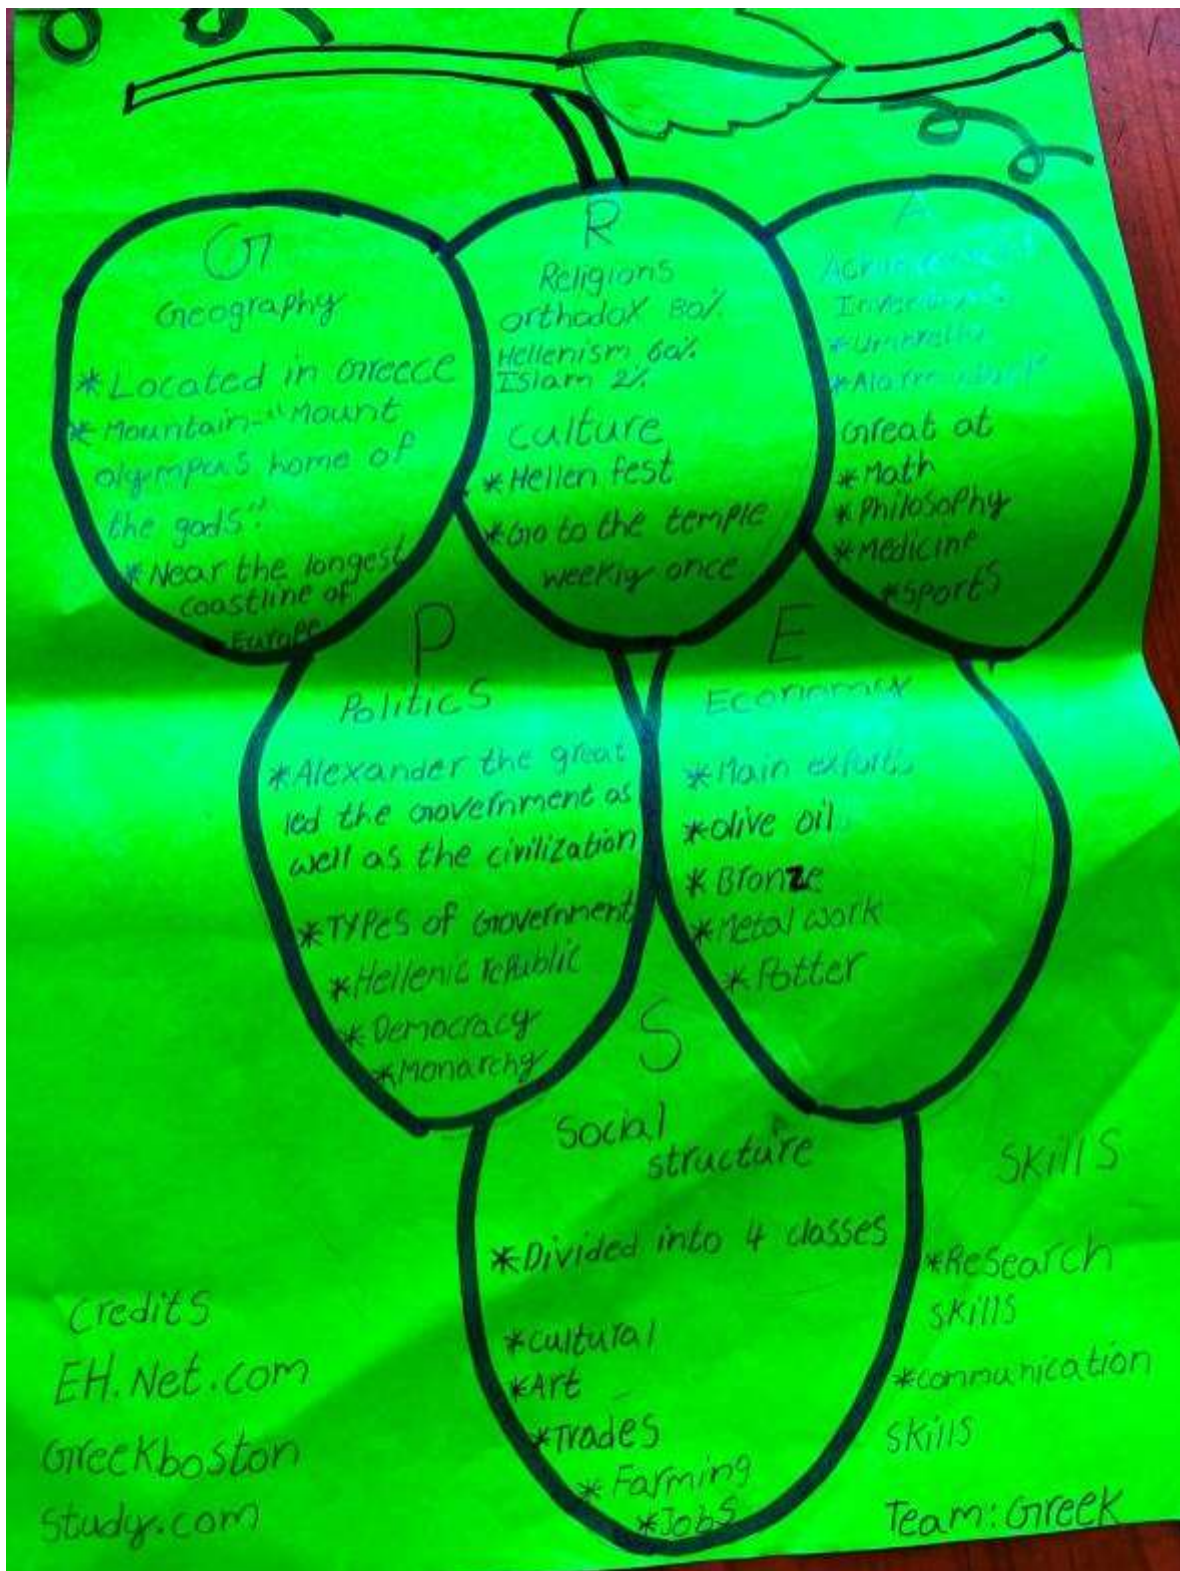 G
Geography
*Located in Greece
*Mountain-"Mount
olympus home of
the gods"
*Near the longest
coastline of
Europe
R
Religions
orthodox 80%
Hellenism 60%
Islam 2%
culture
*Hellen fest
*Go to the temple
weekly once
A
Inventions
*Umbrella
*Alarm clock
Great at
*Math
*Philosophy
*Medicine
*sports
P
Politics
*Alexander the great
led the Government as
well as the civilization
*Types of Government
*Hellenic republic
*Democracy
*Monarchy
E
Economy
*Main exports
*olive oil
*Bronze
*Metal work
*Potter
S
Social
structure
*Divided into 4 classes
*cultural
*Art
*Trades
*Farming
*Jobs
Skills
*Research
skills
*communication
skills
Team: Greek
Credits
EH.Net.com
Greekboston
Study.com